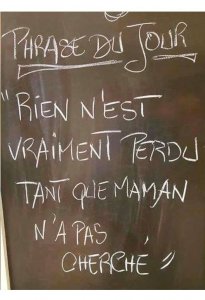 PHRASE DU JOUR
"RIEN N'EST
VRAIMENT PERDU
TANT QUE MAMAN
N'A PAS
CHERCHÉ"